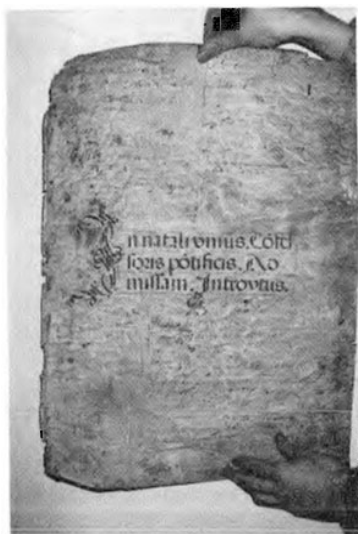 In natali vnius. Cõfes
soris põtificis. Ad
missam. Introytus.